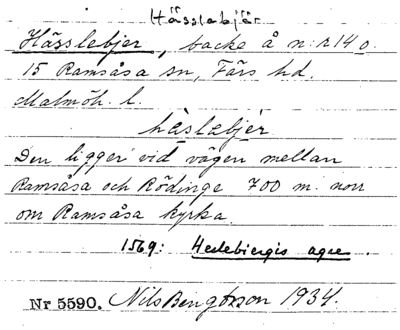 Hässlabjär
Hässlebjer, backe å n:r 14 o.
15 Ramsåsa sn, Färs hd.
Malmöh. l.
hàslabjér
Den ligger vid vägen mellan
Ramsåsa och Rödinge 700 m. norr
om Ramsåsa kyrka.
1569: Heslebiergis agre.
Nr 5590. Nils Bengtsson 1934.